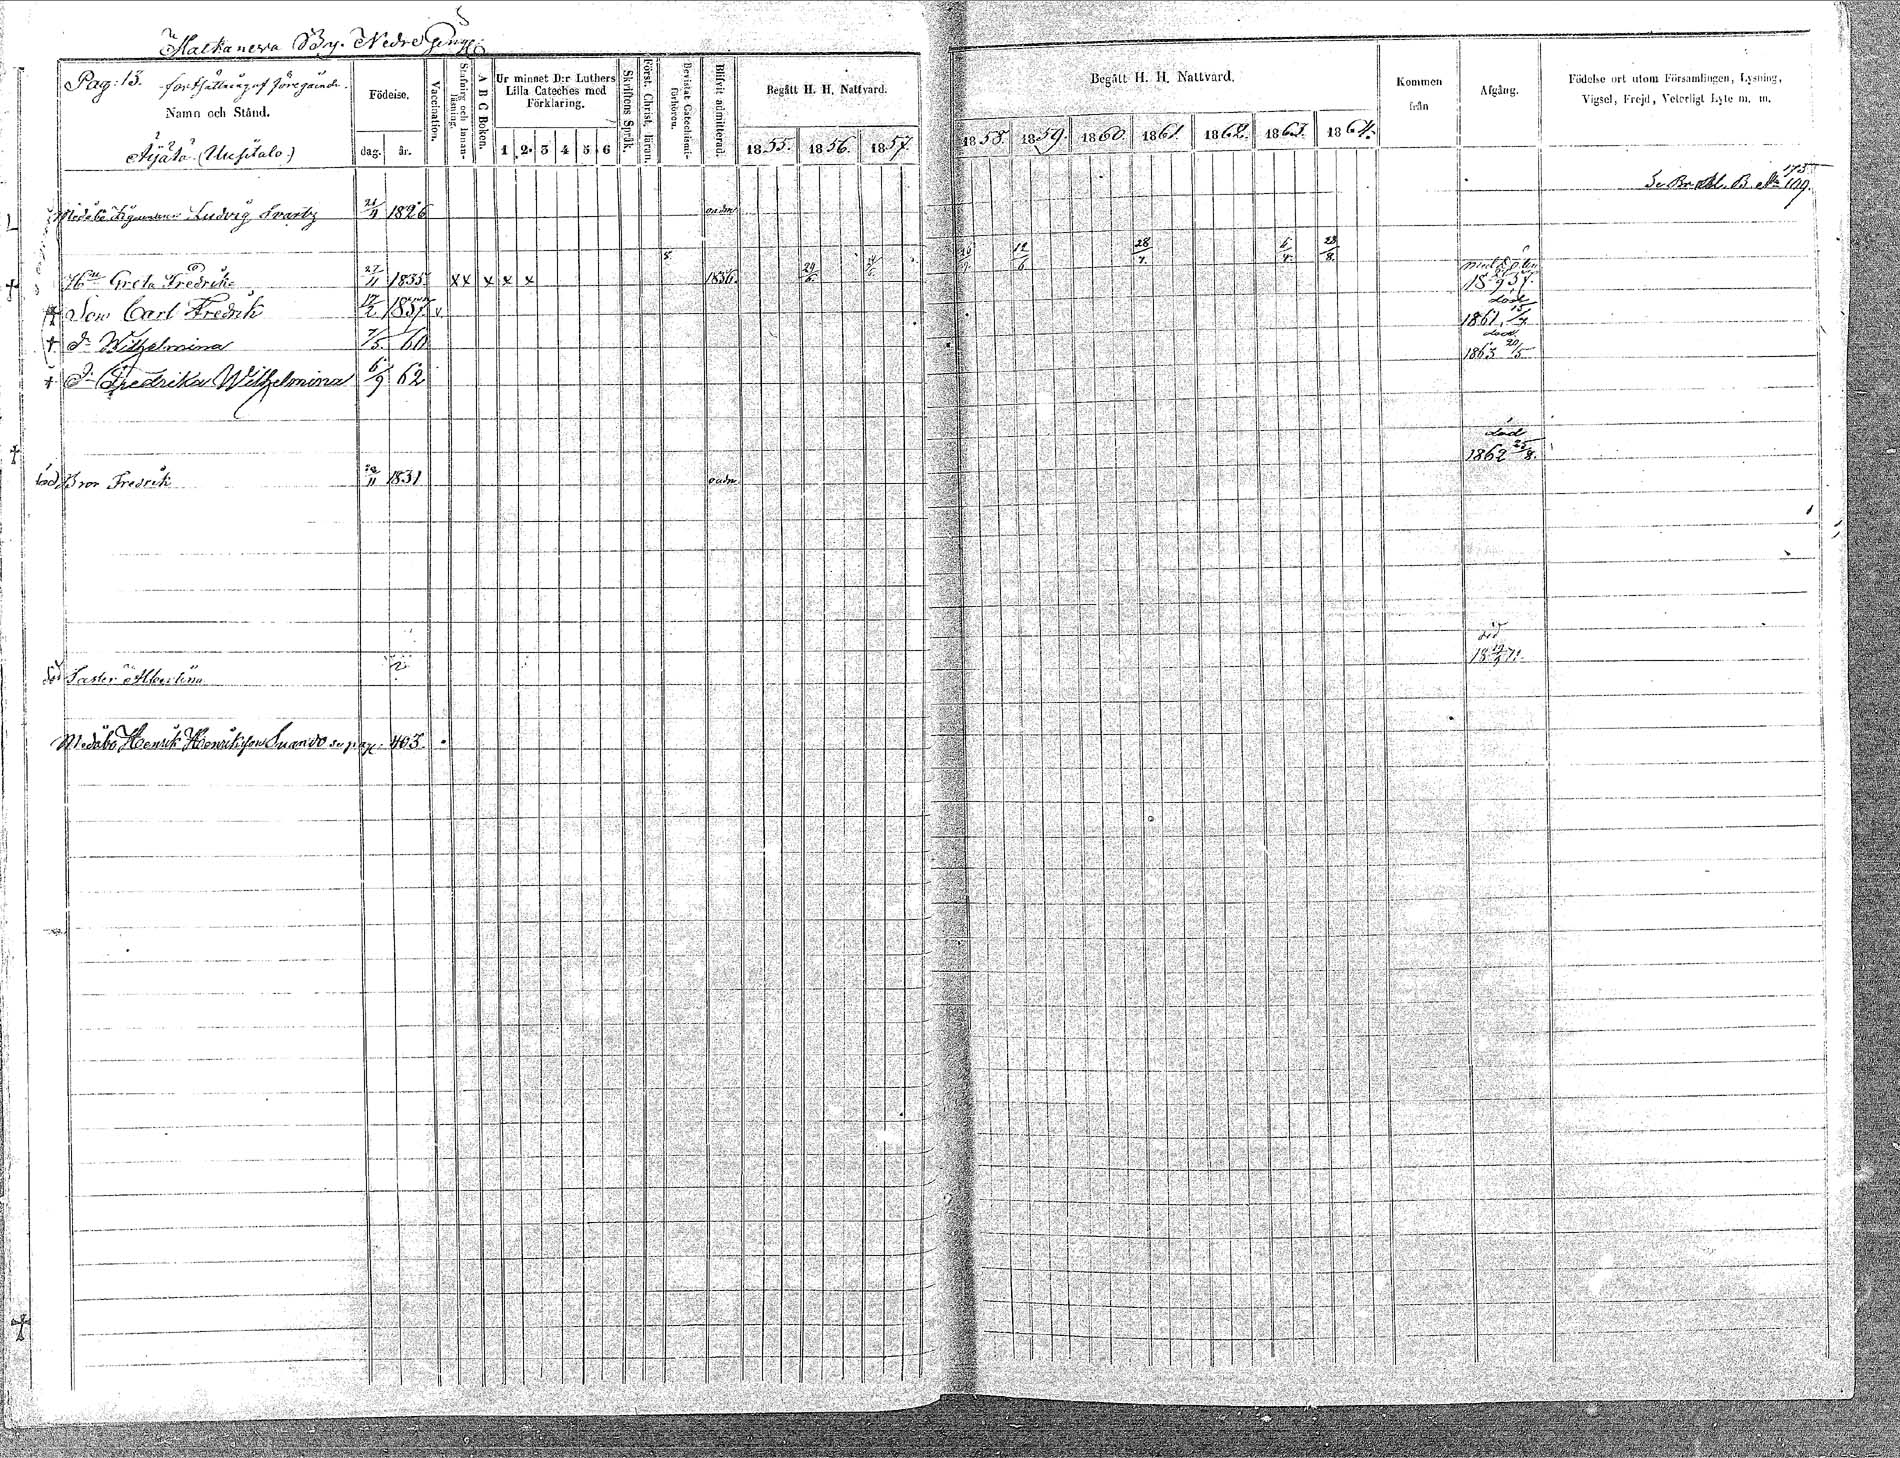 Halkaneva By. Nedre
Pag: 13. fortsättning af föregående.
Namn och Stånd.
Äijälä (Uusitalo)
Födelse.
dag. år.
Vaccination.
Stafning och Innanläsning.
A B C Boken.
Ur minnet D:r Luthers
Lilla Cateches med
Förklaring.
1 2 3 4 5 6
Skriftens Språk.
Först. Christ. läran.
Bevistat Catechismiförhören.
Blifvit admitterad.
Begått H. H. Nattvard.
1855. 1856. 1857.
Begått H. H. Nattvard.
1858. 1859. 1860. 1861. 1862. 1863. 1864.
Kommen
från
Afgång.
Födelse ort utom Församlingen, Lysning,
Vigsel, Frejd, Veterligt Lyte m. m.
175
169.
Ludvig 1826 oadm
Greta Fredrika 27/11 1835. x x x x x 1856. 12/6 28/4. 6/4. 28/8.
Son Carl Fredrik 1857 v
död
1861
d. Wilhelmina 7/5 60
död
1863 20/5
d. Fredrika Wilhelmina 6/9 62
död
1862 25/8.
död Bror Fredrik 1831 oadm
död
död Albertina
Henrik Henriksson se pag. 403.